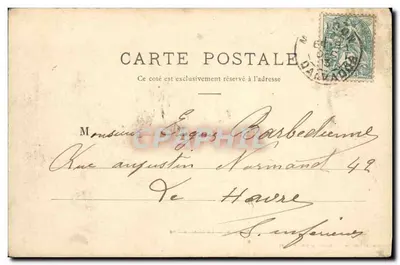 CARTE POSTALE
Ce côté est exclusivement réservé à l'adresse
Monsieur Barbedienne
Rue augustin Normand 42
Le Havre
S. inférieure
CALVADOS